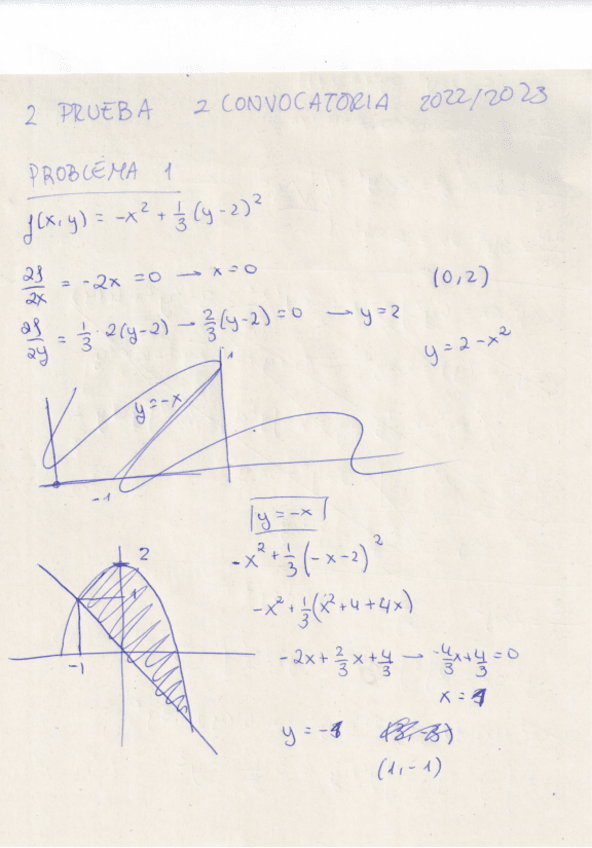 2 PRUEBA 2 CONVOCATORIA 2022/2023
PROBLEMA 1
f(x,y) = -x² + 1/3 (y-2)²
∂f/∂x = -2x = 0 → x=0 (0,2)
∂f/∂y = 1/3 · 2(y-2) → 2/3 (y-2) = 0 → y=2
y = 2 - x²
1
y=-x
-1
y=-x
-x² + 1/3 (-x-2)²
2
-x² + 1/3 (x²+4+4x)
1
-2x + 2/3 x + 4/3 → -4/3 x + 4/3 = 0
-1
x = 1
y = -1
(1,-1)